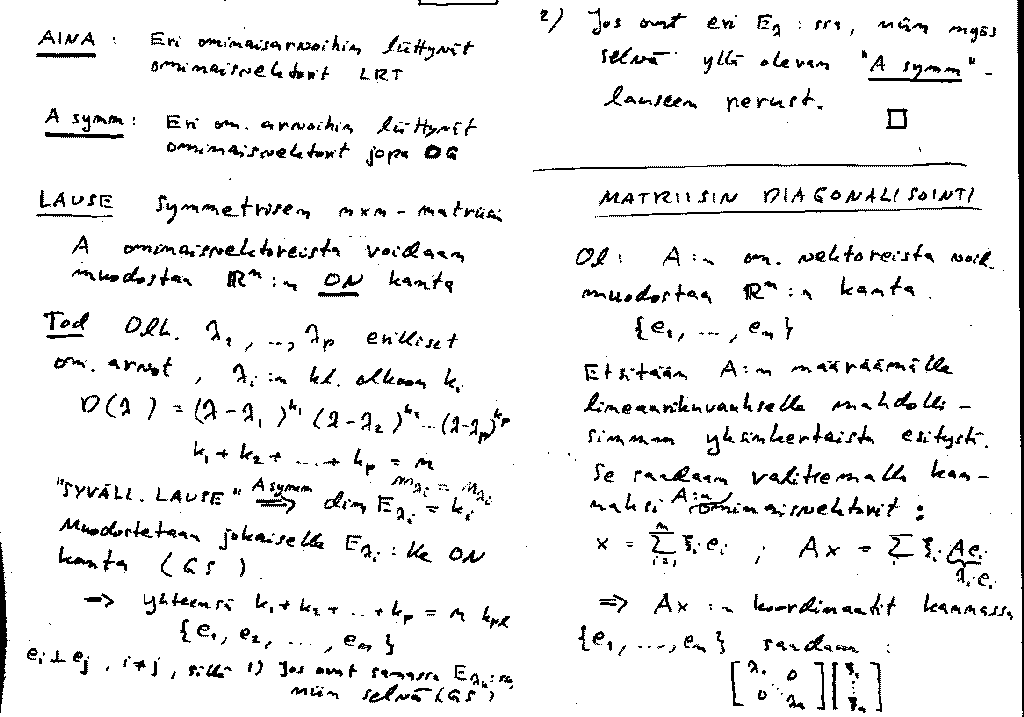 AINA : Eri ominaisarvoihin liittyvät
ominaisvektorit LRT
A symm : Eri om. arvoihin liittyvät
ominaisvektorit jopa OG
LAUSE Symmetrisen n×n-matriisin
A ominaisvektoreista voidaan
muodostaa ℝⁿ:n ON kanta
Tod Olk. λ₁, ..., λp erilliset
om. arvot, λᵢ:n kl. olkoon kᵢ
D(λ) = (λ-λ₁)^k₁ (λ-λ₂)^k₂ ... (λ-λp)^kp
k₁ + k₂ + ... + kp = n
"SYVÄLL. LAUSE" A symm ⟹ dim E_λᵢ = kᵢ
m_λᵢ = M_λᵢ
Muodostetaan jokaiselle E_λᵢ:lle ON
kanta (GS)
⟹ yhteensä k₁ + k₂ + ... + kp = n kpl
{e₁, e₂, ..., eₙ}
eᵢ ⊥ eⱼ, i≠j, sillä 1) Jos ovat samassa E_λₖ:ssa,
niin selvä (GS)
2) Jos ovat eri E_λ:ssa, niin myös
selvä yllä olevan "A symm"-
lauseen perust. □
MATRIISIN DIAGONALISOINTI
Ol: A:n om. vektoreista void.
muodostaa ℝⁿ:n kanta.
{e₁, ..., eₙ}
Etsitään A:n määräämälle
lineaarikuvaukselle mahdolli-
simman yksinkertaista esitystä.
Se saadaan valitsemalla kan-
naksi A:n ominaisvektorit :
x = Σᵢ₌₁ⁿ ξᵢ eᵢ ; Ax = Σᵢ ξᵢ Aeᵢ
λᵢ eᵢ
⟹ Ax:n koordinaatit kannassa
{e₁, ..., eₙ} saadaan :
[λ₁ 0 ⋱ 0 λₙ] [ξ₁ ⋮ ξₙ]